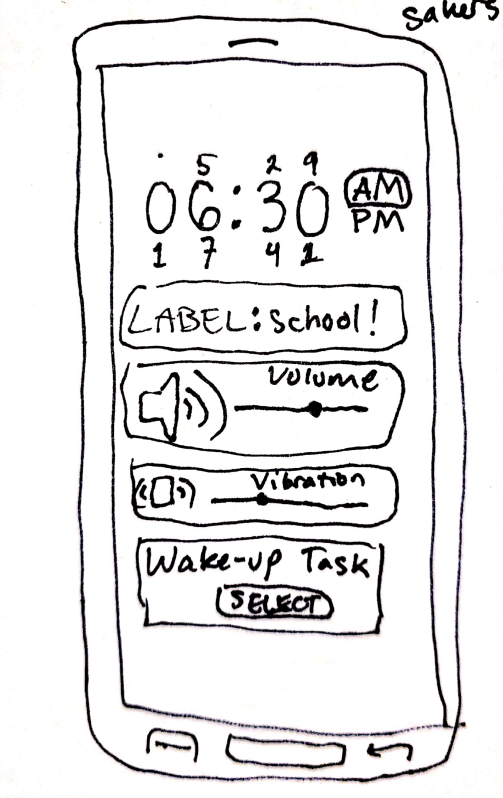 5 2 9
06:30 AM
PM
1 7 4 1
LABEL: School!
Volume
Vibration
Wake-up Task
SELECT